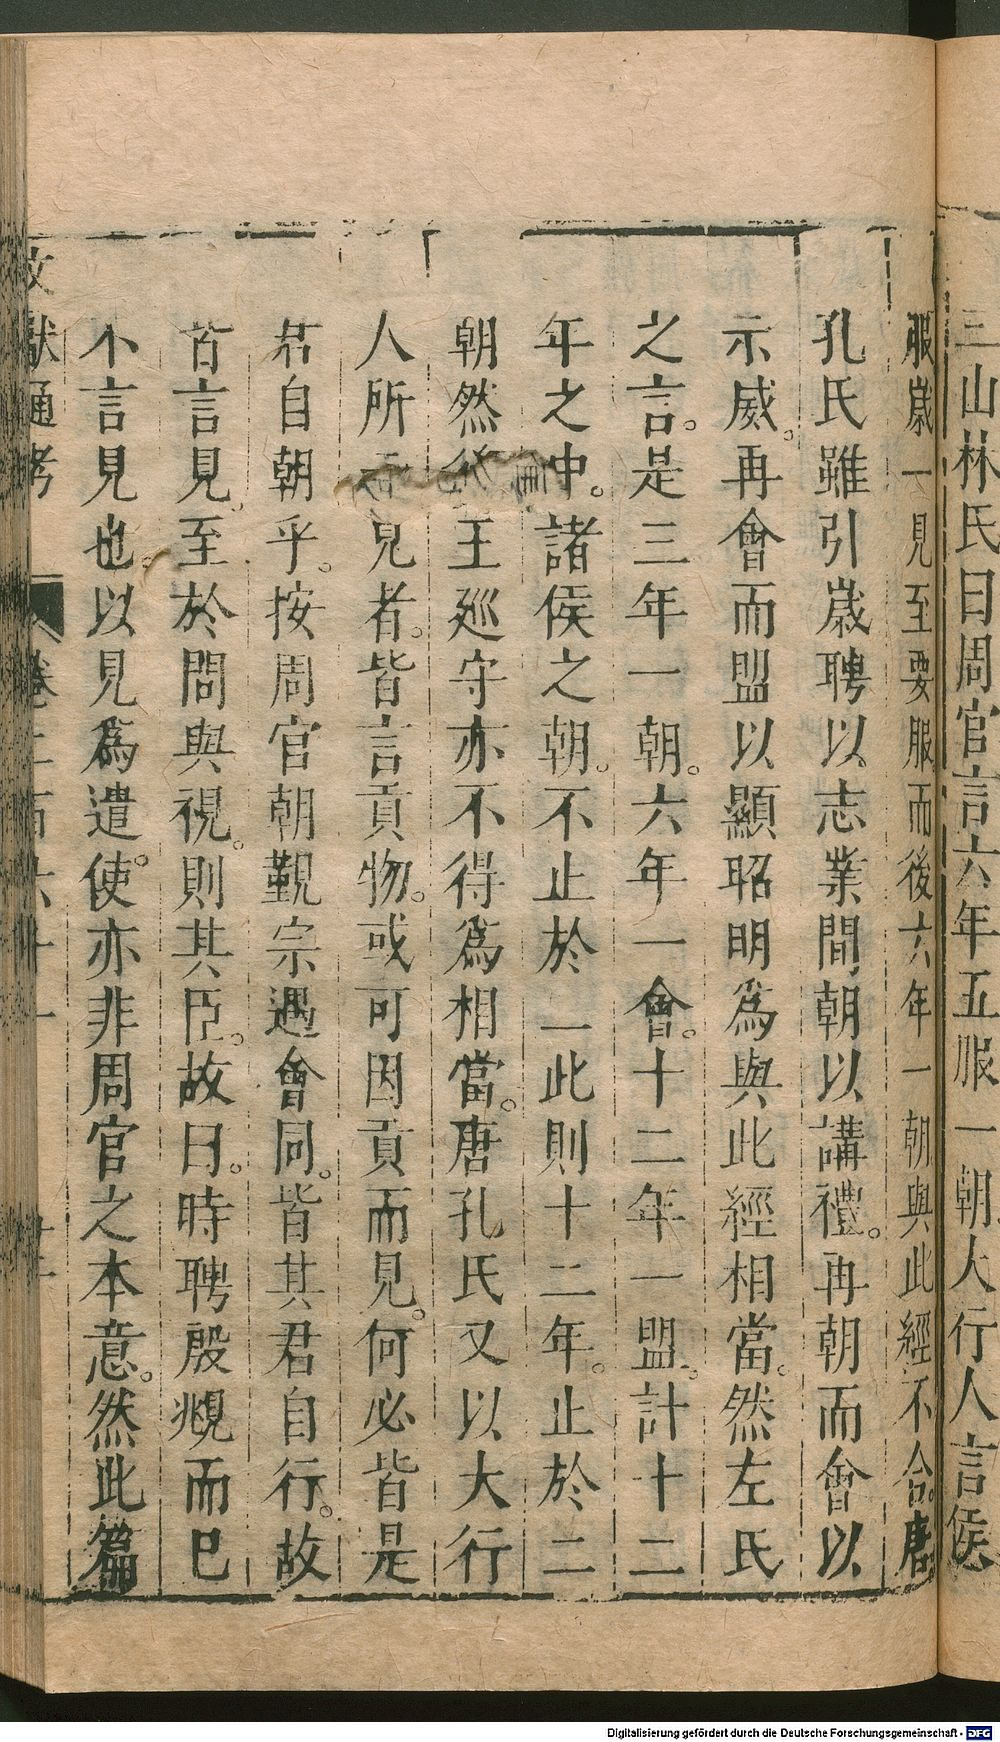 三山林氏曰周官言六年五服一朝大行人言侯
服歲一見至要服而後六年一朝與此經不合。唐
孔氏雖引歲聘以志業間朝以講禮。再朝而會以
示威。再會而盟以顯昭明爲與此經相當。然左氏
之言。是三年一朝。六年一會。十二年一盟。計十二
年之中。諸侯之朝。不止於一此則十二年。止於二
朝然後王廵守亦不得爲相當。唐孔氏又以大行
人所見者。皆言貢物。或可因貢而見。何必皆是
君自朝乎。按周官朝覲宗遇會同。皆其君自行。故
皆言見。至於問與視。則其臣。故曰。時聘殷覜而巳
不言見也。以見爲遣使。亦非周官之本意。然此篇
文獻通考 卷二百六十一
Digitalisierung gefördert durch die Deutsche Forschungsgemeinschaft - DFG